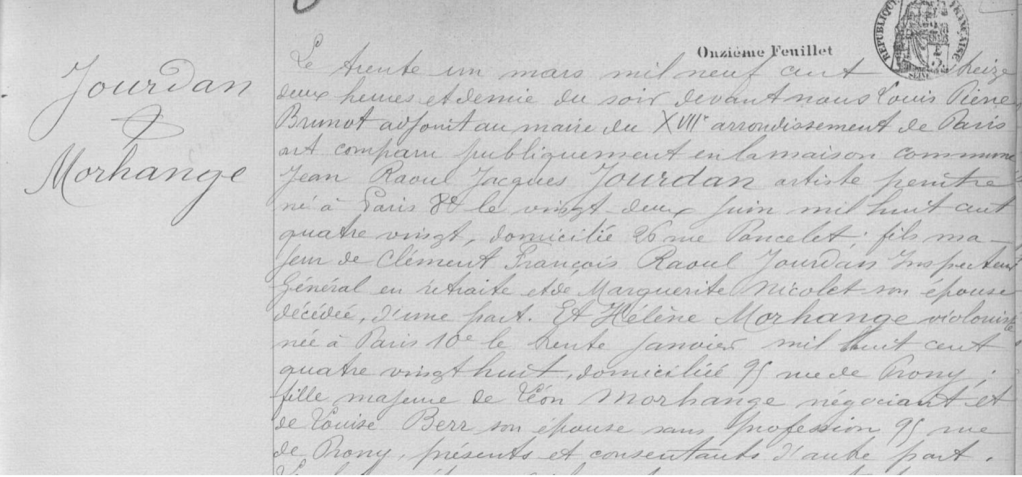 Jourdan
&
Morhange
Onzième Feuillet
RÉPUBLIQUE FRANÇAISE
Le trente un mars mil neuf cent treize
deux heures et demie du soir devant nous Louis Pierre
Brunot adjoint au maire du XVIIe arrondissement de Paris
ont comparu publiquement en la maison commune
Jean Raoul Jacques Jourdan artiste peintre
né à Paris 8e le vingt deux juin mil huit cent
quatre vingt, domicilié 26 rue Poncelet; fils ma-
jeur de Clément François Raoul Jourdan Inspecteur
Général en retraite et de Marguerite Nicolet son épouse
décédée, d'une part. Et Hélène Morhange violoniste
née à Paris 10e le trente janvier mil huit cent
quatre vingt huit, domiciliée 95 rue de Prony;
fille majeure de Léon Morhange négociant et
de Louise Berr son épouse sans profession 95 rue
de Prony, présents et consentants d'autre part.